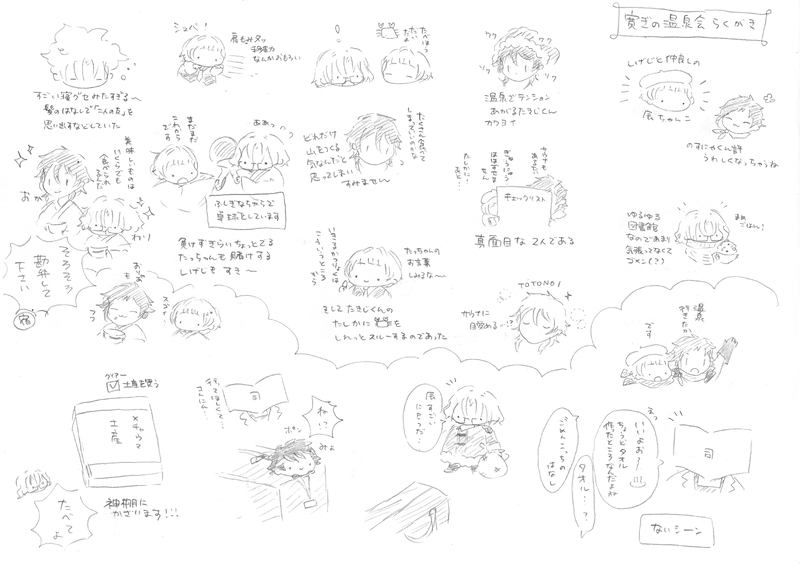 寛ぎの温泉会 らくがき
しげじと仲良しの
展ちゃんこ
のすにゃくん許
うれしくなっちゃうね
ワクワク
ワクワク
温泉でテンション
あがるたきじくん
カワヨイ
シュバ!
肩もみタッ
なんかおもろい
すごい寝グセみたすぎる〜
髪のはなしで「二人の夜」を
思い出すなどしていた
美味しいものは
いくらでも
食べられ
るんだ
おか
わり
そろそろ
勘弁して
下さい
まだまだ
これから
です
ああっ
ふしぎなちからで
卓球としています
負けずぎらいちょっとでてる
たっちゃんも 負けする
しげじも すき〜
どれだけ
山をつくる
気なんだと
思ってしまい
すみません
たくさん食べて
チェックリスト
真面目な2人である
ゆるゆる
図書館
なのであまり
気張ってなくて
ゴメン(?)
たっちゃんの
お言葉
しみるな〜
そしてたきじくんの
たしかに
しれっとスルーするのであった
TOTONOI
からすに
目覚める…!?
スゴイ
フフ
温泉
行きたか
です
クリアー
土産を買う
メチャウマ
土産
神棚に
かざいます!!!
たべて
よ
行ってほしくて…
さんにん…
ね!?
ポン
みょ
展すごい
にもつだ…
ごめんこっちの
はなし
タオル…?
えっ
いいよお〜
ちょうどタオル
作ったところなんだよね
司
ないシーン